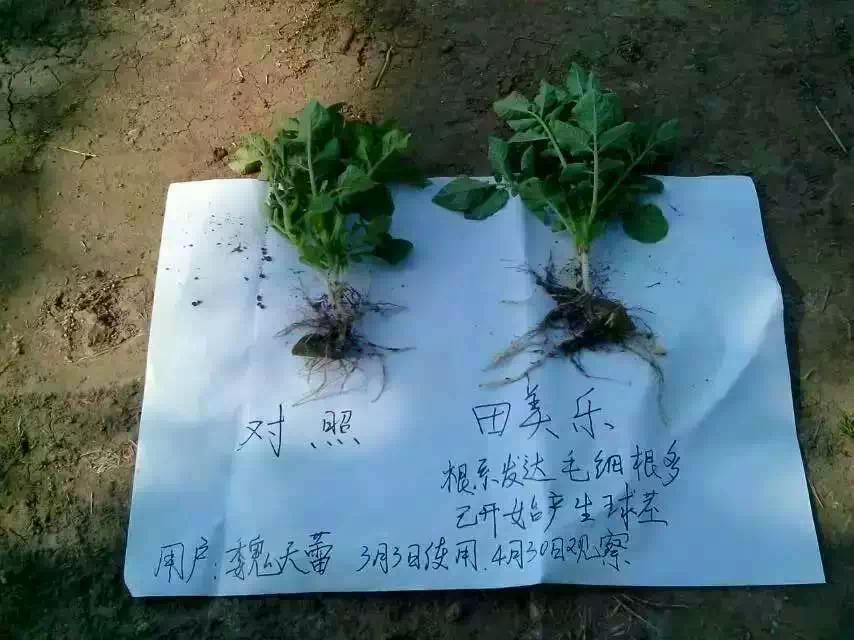 对照
田美乐
根系发达毛细根多
已开始产生球茎
用户:魏天蕾 3月3日使用.4月30日观察